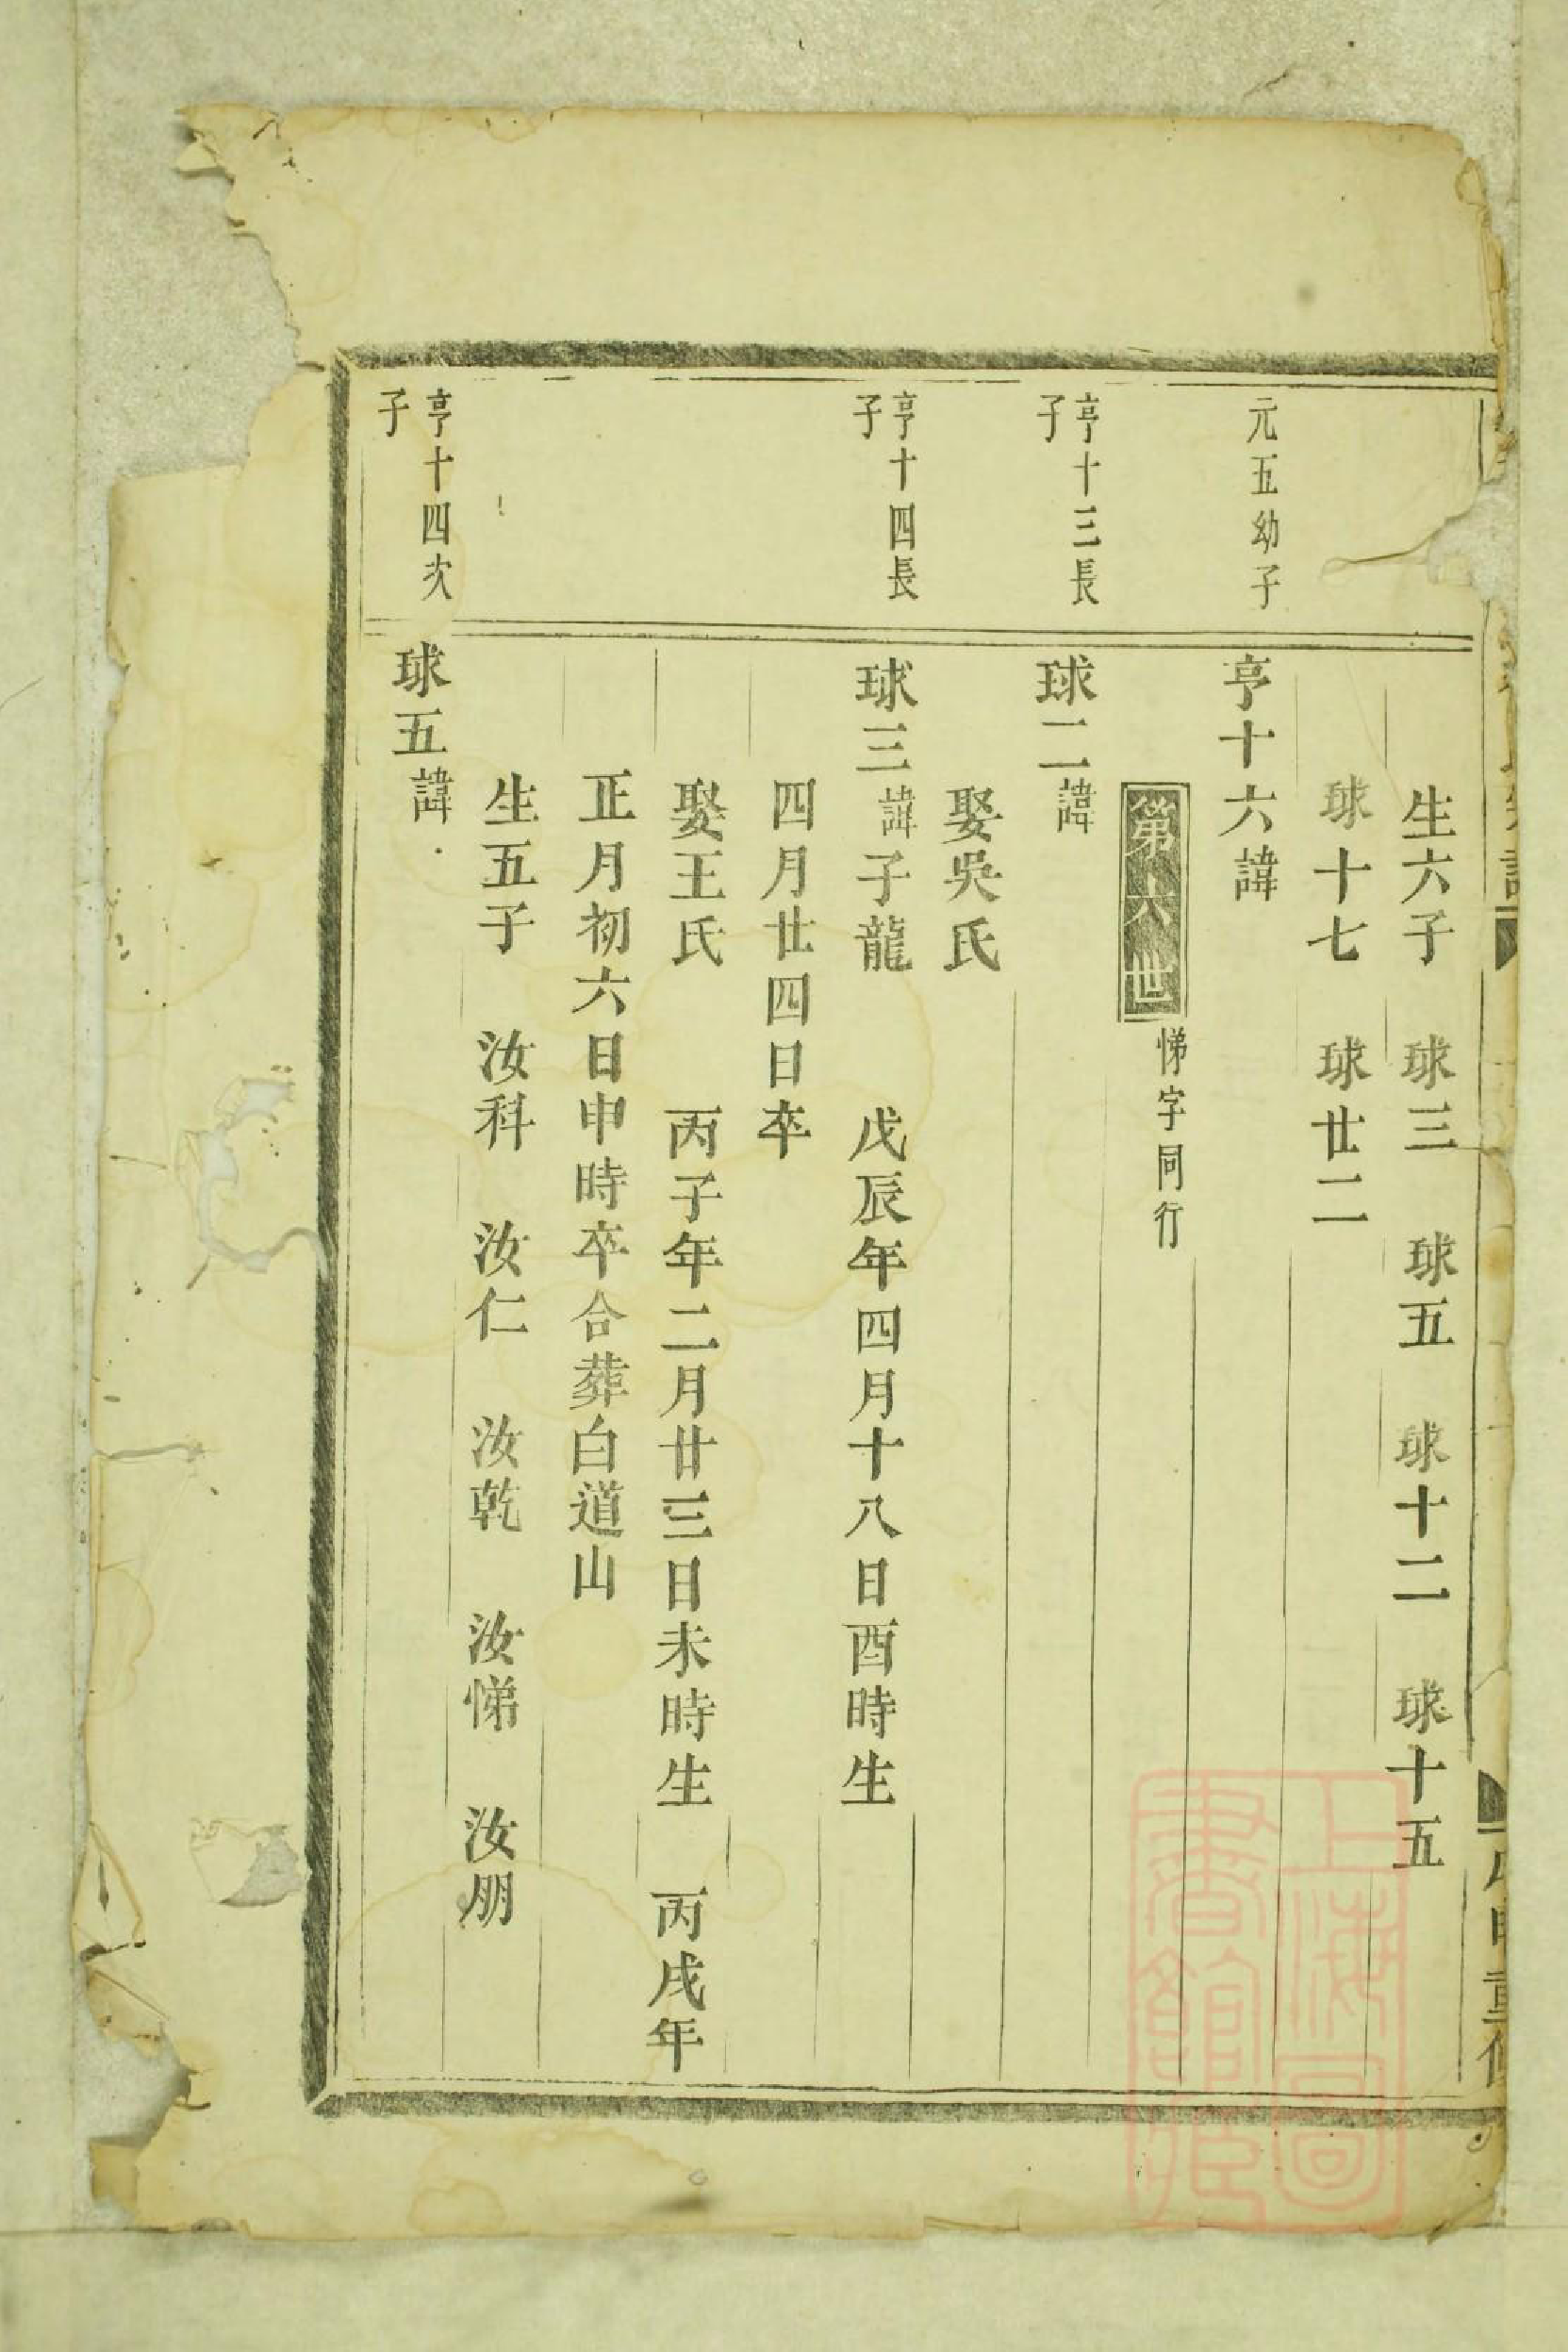 生六子 球三 球五 球十二 球十五
球十七 球廿二
元五幼子
亨十六諱
第六世 悌字同行
亨十三長
子
球二諱
娶吳氏
亨十四長
子
球三諱子龍 戊辰年四月十八日酉時生
四月廿四日卒
娶王氏 丙子年二月廿三日未時生 丙戌年
正月初六日申時卒合葬白道山
生五子 汝科 汝仁 汝乾 汝悌 汝朋
亨十四次
子
球五諱
上海圖
書館藏